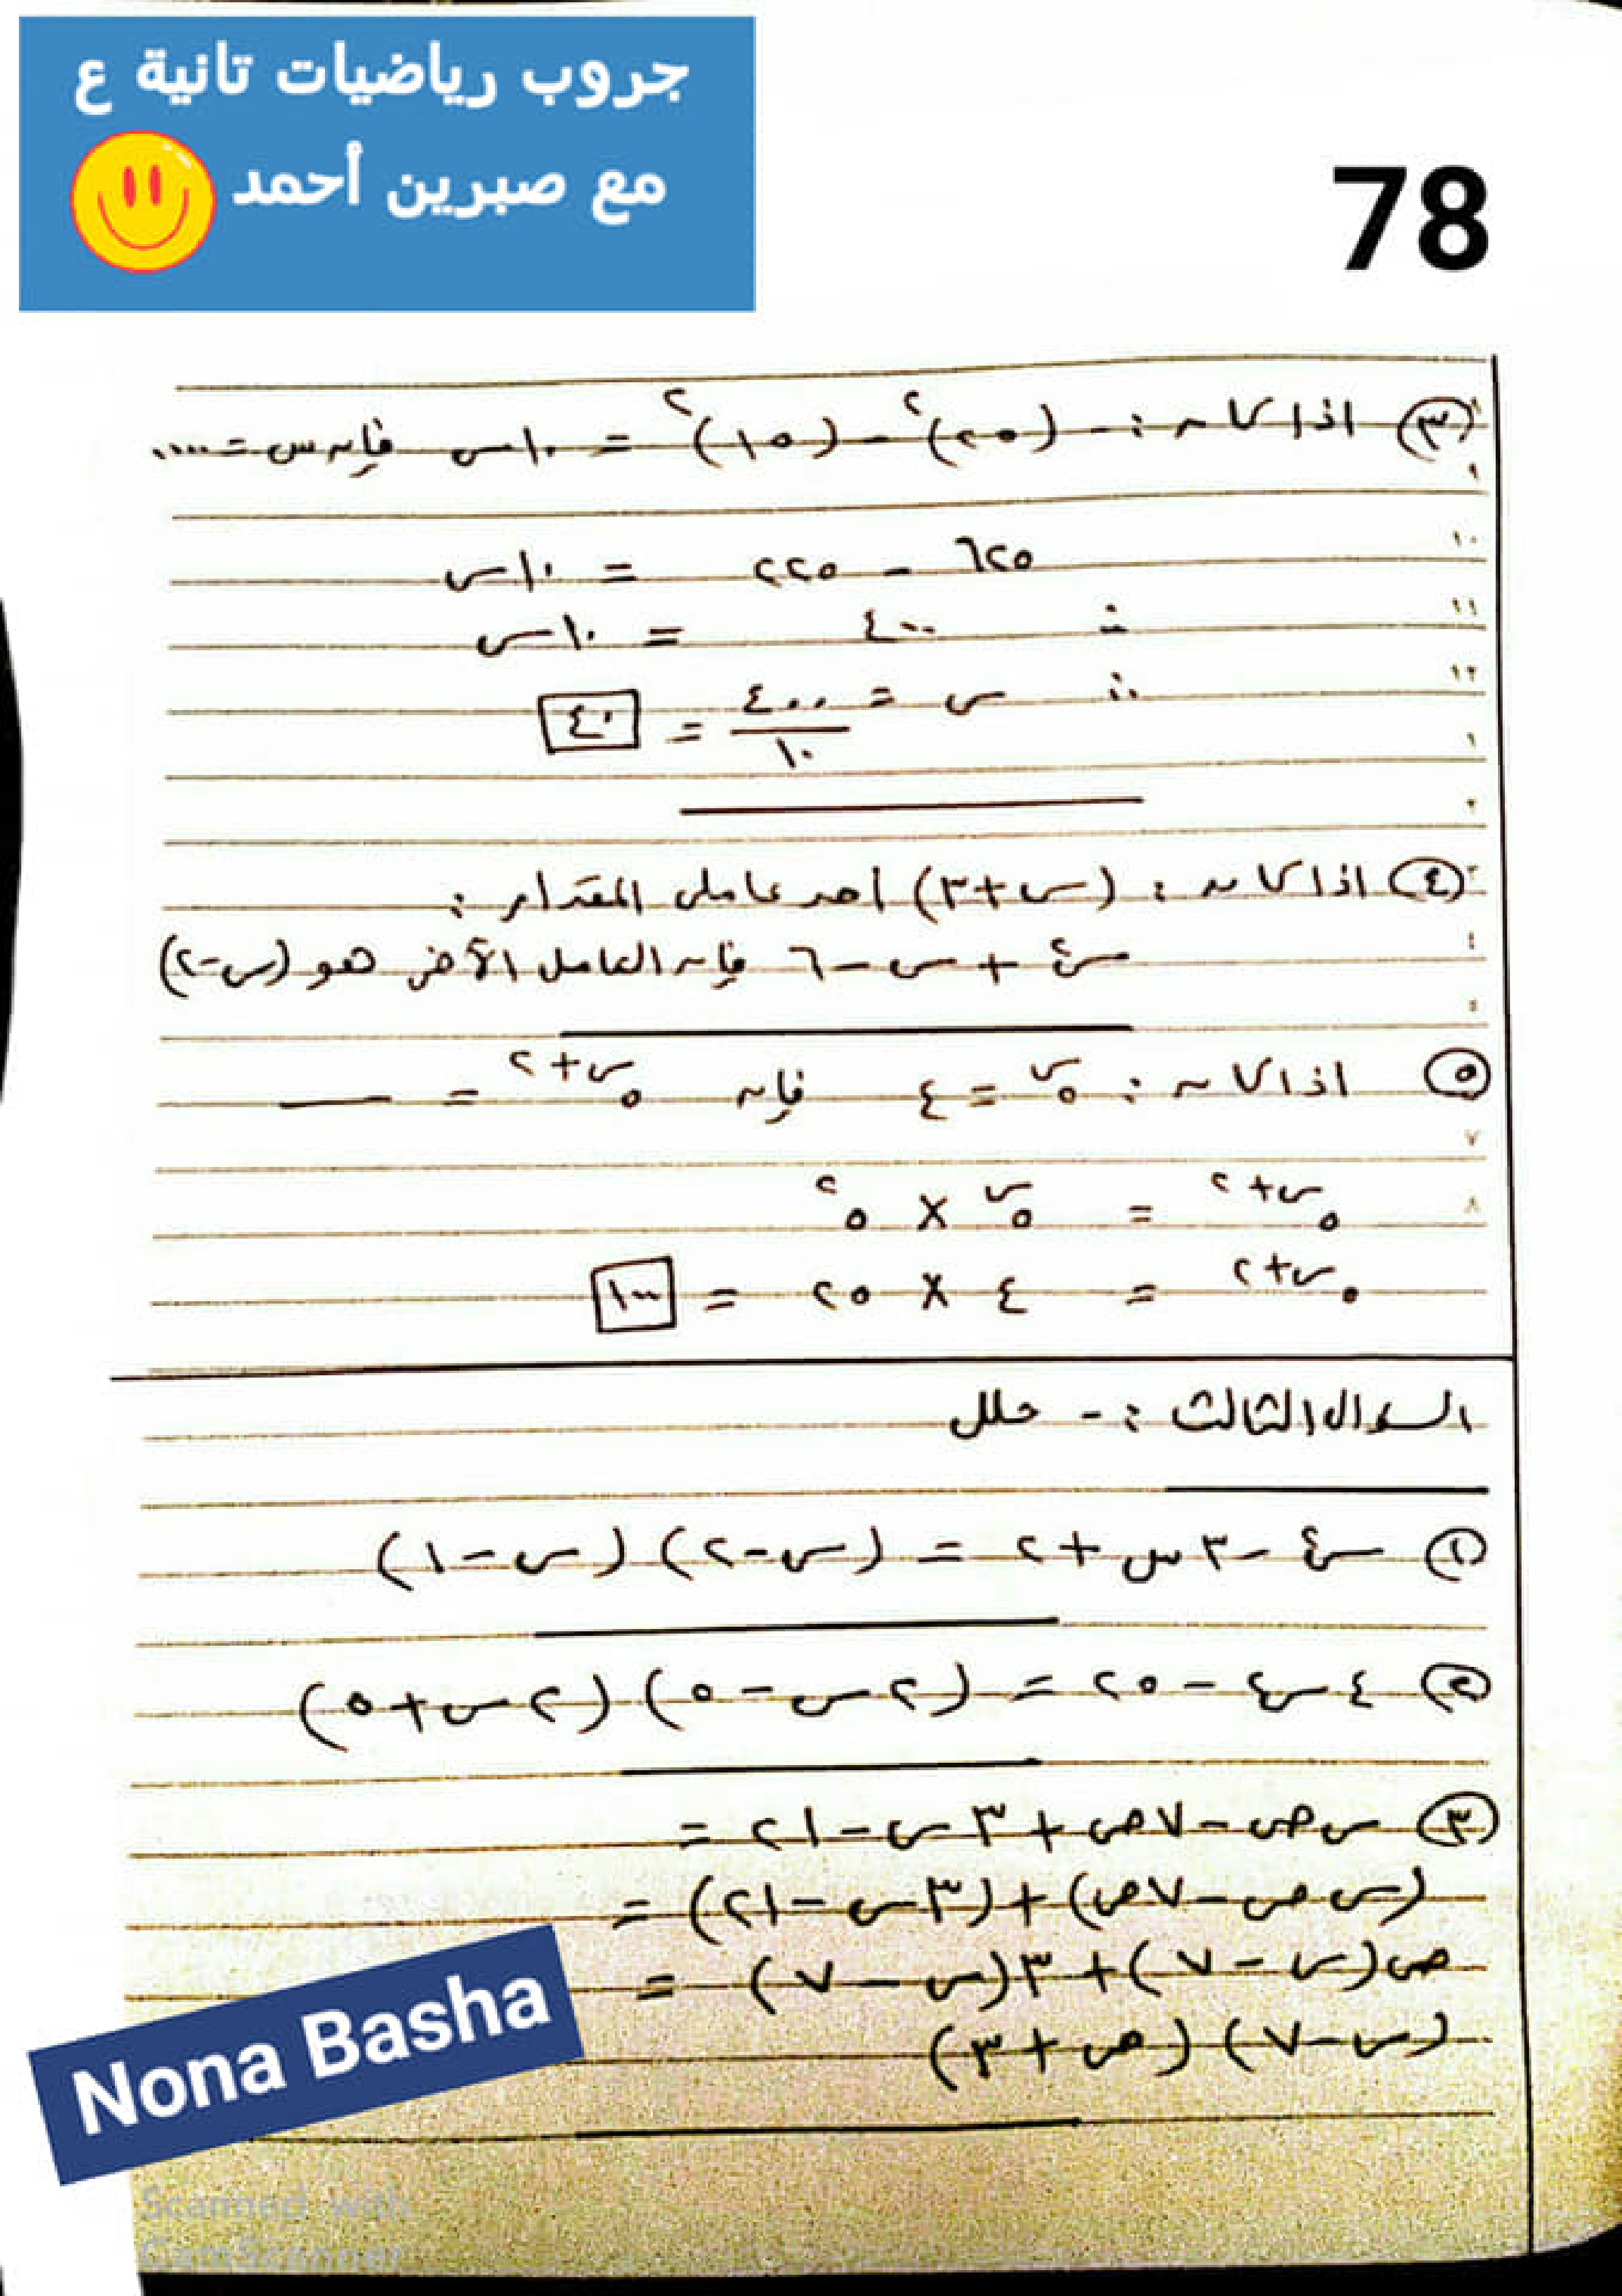 جروب رياضيات تانية ع
مع صبرين أحمد
78
(٣) اذا كان :- (٢٥)٢ - (١٥)٢ = ١٠س فإن س = .....
٦٢٥ - ٢٢٥ = ١٠س
∴ ٤٠٠ = ١٠س
∴ س = ٤٠٠/١٠ = ٤٠
(٤) اذا كان : (س+٣) احد عاملى المقدار :
س٢ + س - ٦ فإن العامل الآخر هو (س-٢)
(٥) اذا كان : ٥^س = ٤ فإن ٥^(س+٢) = ___
٥^(س+٢) = ٥^س × ٥^٢
٥^(س+٢) = ٤ × ٢٥ = ١٠٠
السؤال الثالث :- حلل
(١) س٢ - ٣س + ٢ = (س-٢) (س-١)
(٢) ٤س٢ - ٢٥ = (٢س-٥) (٢س+٥)
(٣) س ص - ٧ص + ٣س - ٢١ =
(س ص - ٧ص) + (٣س - ٢١) =
ص(س-٧) + ٣(س-٧) =
(س-٧) (ص+٣)
Nona Basha
Scanned with
CamScanner
٨
٩
١٠
١١
١٢
١
٢
٣
٤
٥
٧
٨